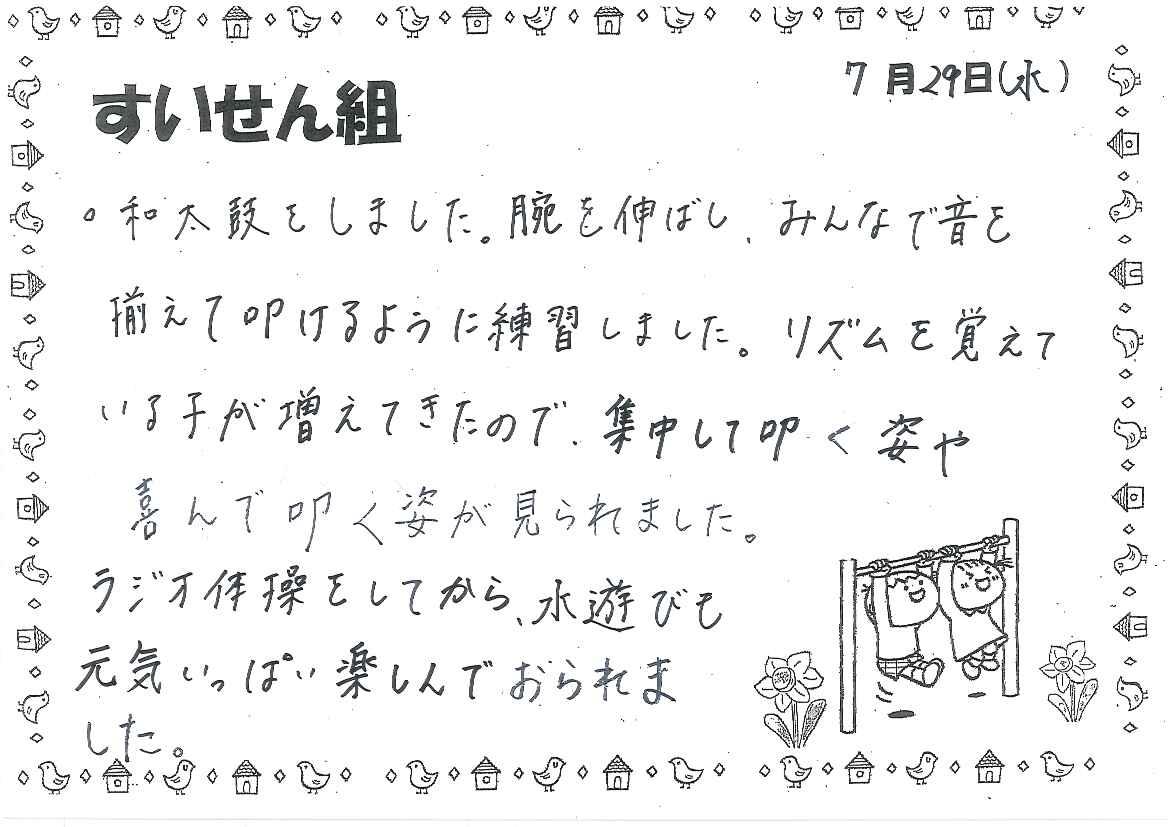 7月29日(水)
すいせん組
。和太鼓をしました。腕を伸ばし、みんなで音を
揃えて叩けるように練習しました。リズムを覚えて
いる子が増えてきたので、集中して叩く姿や
喜んで叩く姿が見られました。
ラジオ体操をしてから、水遊びも
元気いっぱい楽しんでおられま
した。